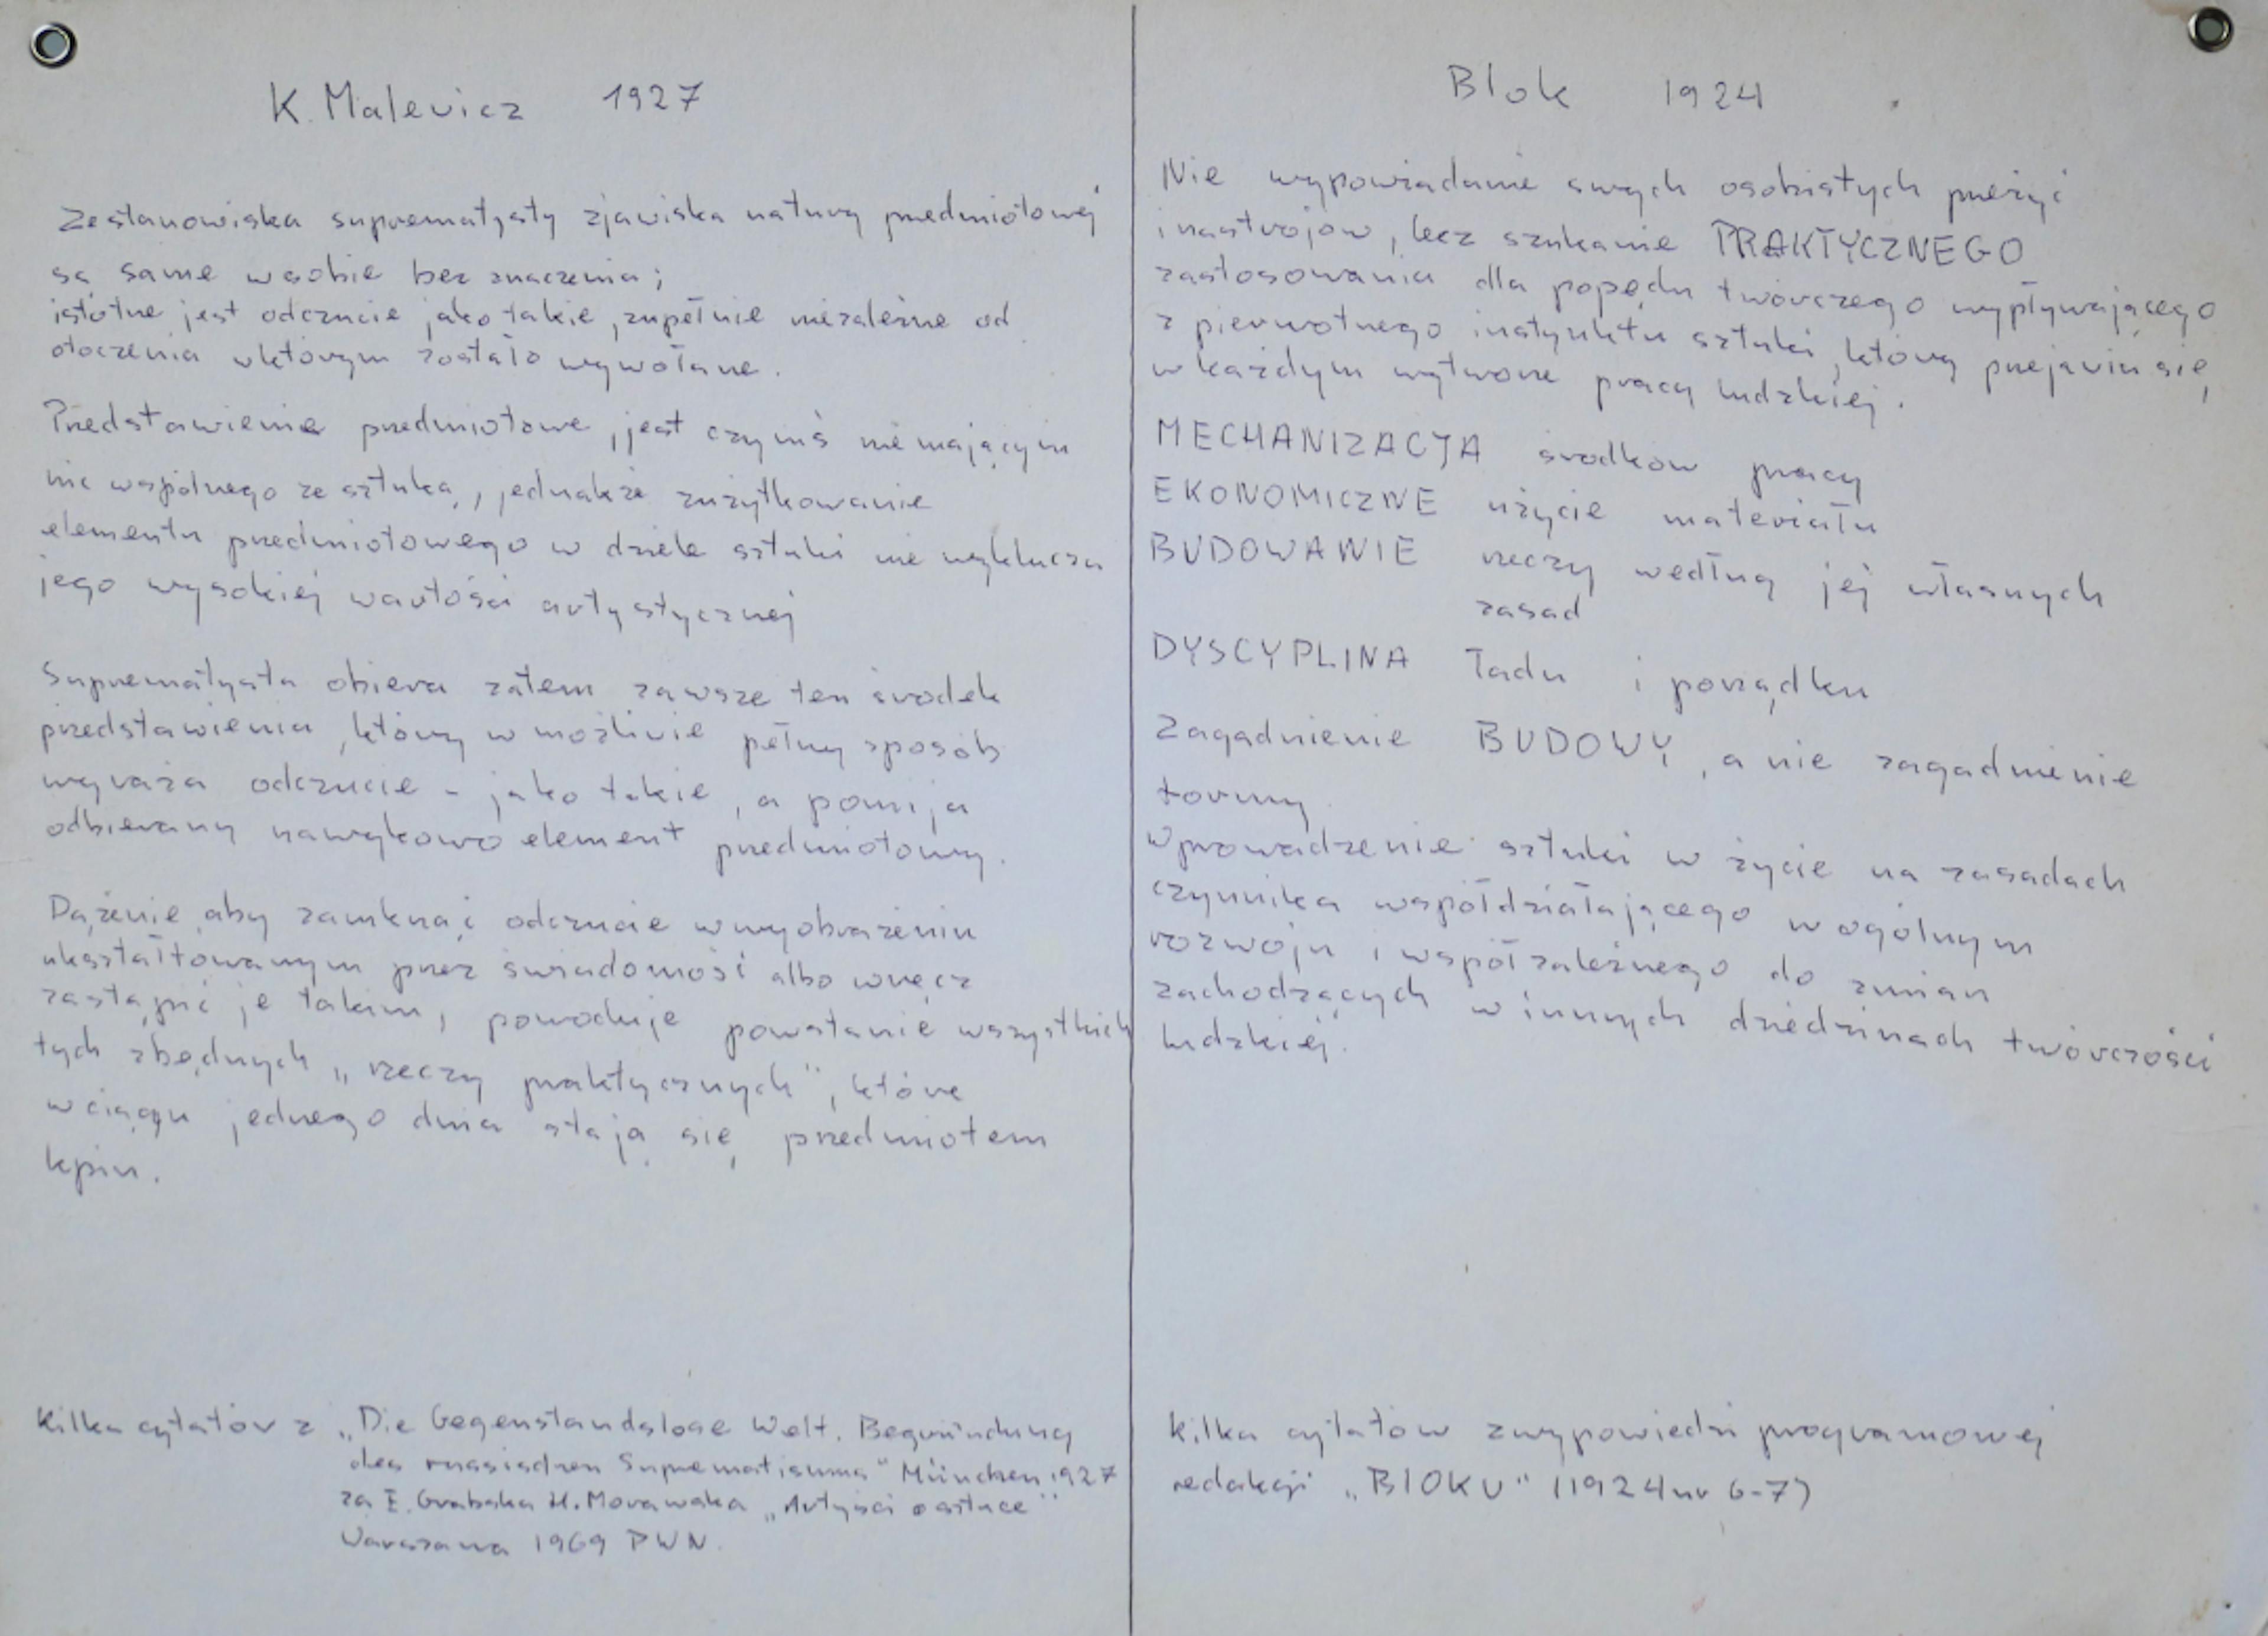 K. Malevicz 1927
Ze stanowiska suprematysty zjawiska natury przedmiotowej
są same w sobie bez znaczenia;
istotne jest odczucie jako takie, zupełnie niezależne od
otoczenia w którym zostało wywołane.
Przedstawienie przedmiotowe, jest czymś nie mającym
nic wspólnego ze sztuką, jednakże zużytkowanie
elementu przedmiotowego w dziele sztuki nie wyklucza
jego wysokiej wartości artystycznej
Suprematysta obiera zatem zawsze ten środek
przedstawienia, który w możliwie pełny sposób
wyraża odczucie - jako takie, a pomija
odbierany nawykowo element przedmiotowy.
Dążenie, aby zamknąć odczucie w wyobrażeniu
ukształtowanym przez świadomość albo wręcz
zastąpić je takim, powoduje powstanie wszystkich
tych zbędnych „rzeczy praktycznych", które
w ciągu jednego dnia stają się przedmiotem
kpin.
Kilka cytatów z „Die Gegenstandslose Welt. Begründung
des russischen Suprematismus" München 1927
za E. Grabska H. Morawska „Artyści o sztuce"
Warszawa 1969 PWN.
Blok 1924
Nie wypowiadanie swych osobistych przeżyć
i nastrojów, lecz szukanie PRAKTYCZNEGO
zastosowania dla popędu twórczego wypływającego
z pierwotnego instynktu sztuki, który przejawia się
w każdym wytworze pracy ludzkiej.
MECHANIZACJA środków pracy
EKONOMICZNE użycie materiału
BUDOWANIE rzeczy według jej własnych
zasad
DYSCYPLINA ładu i porządku
Zagadnienie BUDOWY, a nie zagadnienie
formy
Wprowadzenie sztuki w życie na zasadach
czynnika współdziałającego w ogólnym
rozwoju i współzależnego do zmian
zachodzących w innych dziedzinach twórczości
ludzkiej.
Kilka cytatów z wypowiedzi programowej
redakcji „BlOKU" (1924 nr 6-7)